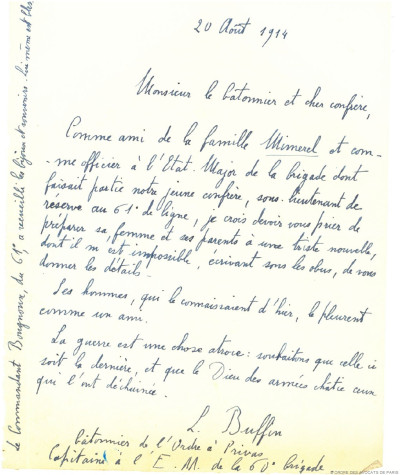 20 Août 1914
Monsieur le bâtonnier et cher confrère,
Comme ami de la famille Mimerel et com-
-me officier à l'Etat-Major de la brigade dont
faisait partie notre jeune confrère, sous-lieutenant de
réserve au 61e de ligne, je crois devoir vous prier de
préparer sa femme et ses parents à une triste nouvelle,
dont il m'est impossible, écrivant sous les obus, de vous
donner les détails.
Ses hommes, qui le connaissaient d'hier, le pleurent
comme un ami.
La guerre est une chose atroce : souhaitons que celle ci
soit la dernière, et que le Dieu des armées châtie ceux
qui l'ont déchainée.
L. Buffin
bâtonnier de l'Ordre à Privas
Capitaine à l'E. M. de la 60e brigade
Le Commandant Bougnoux, du 61e a recueilli les bijoux et souvenirs. Lui-même est
© ORDRE DES AVOCATS DE PARIS